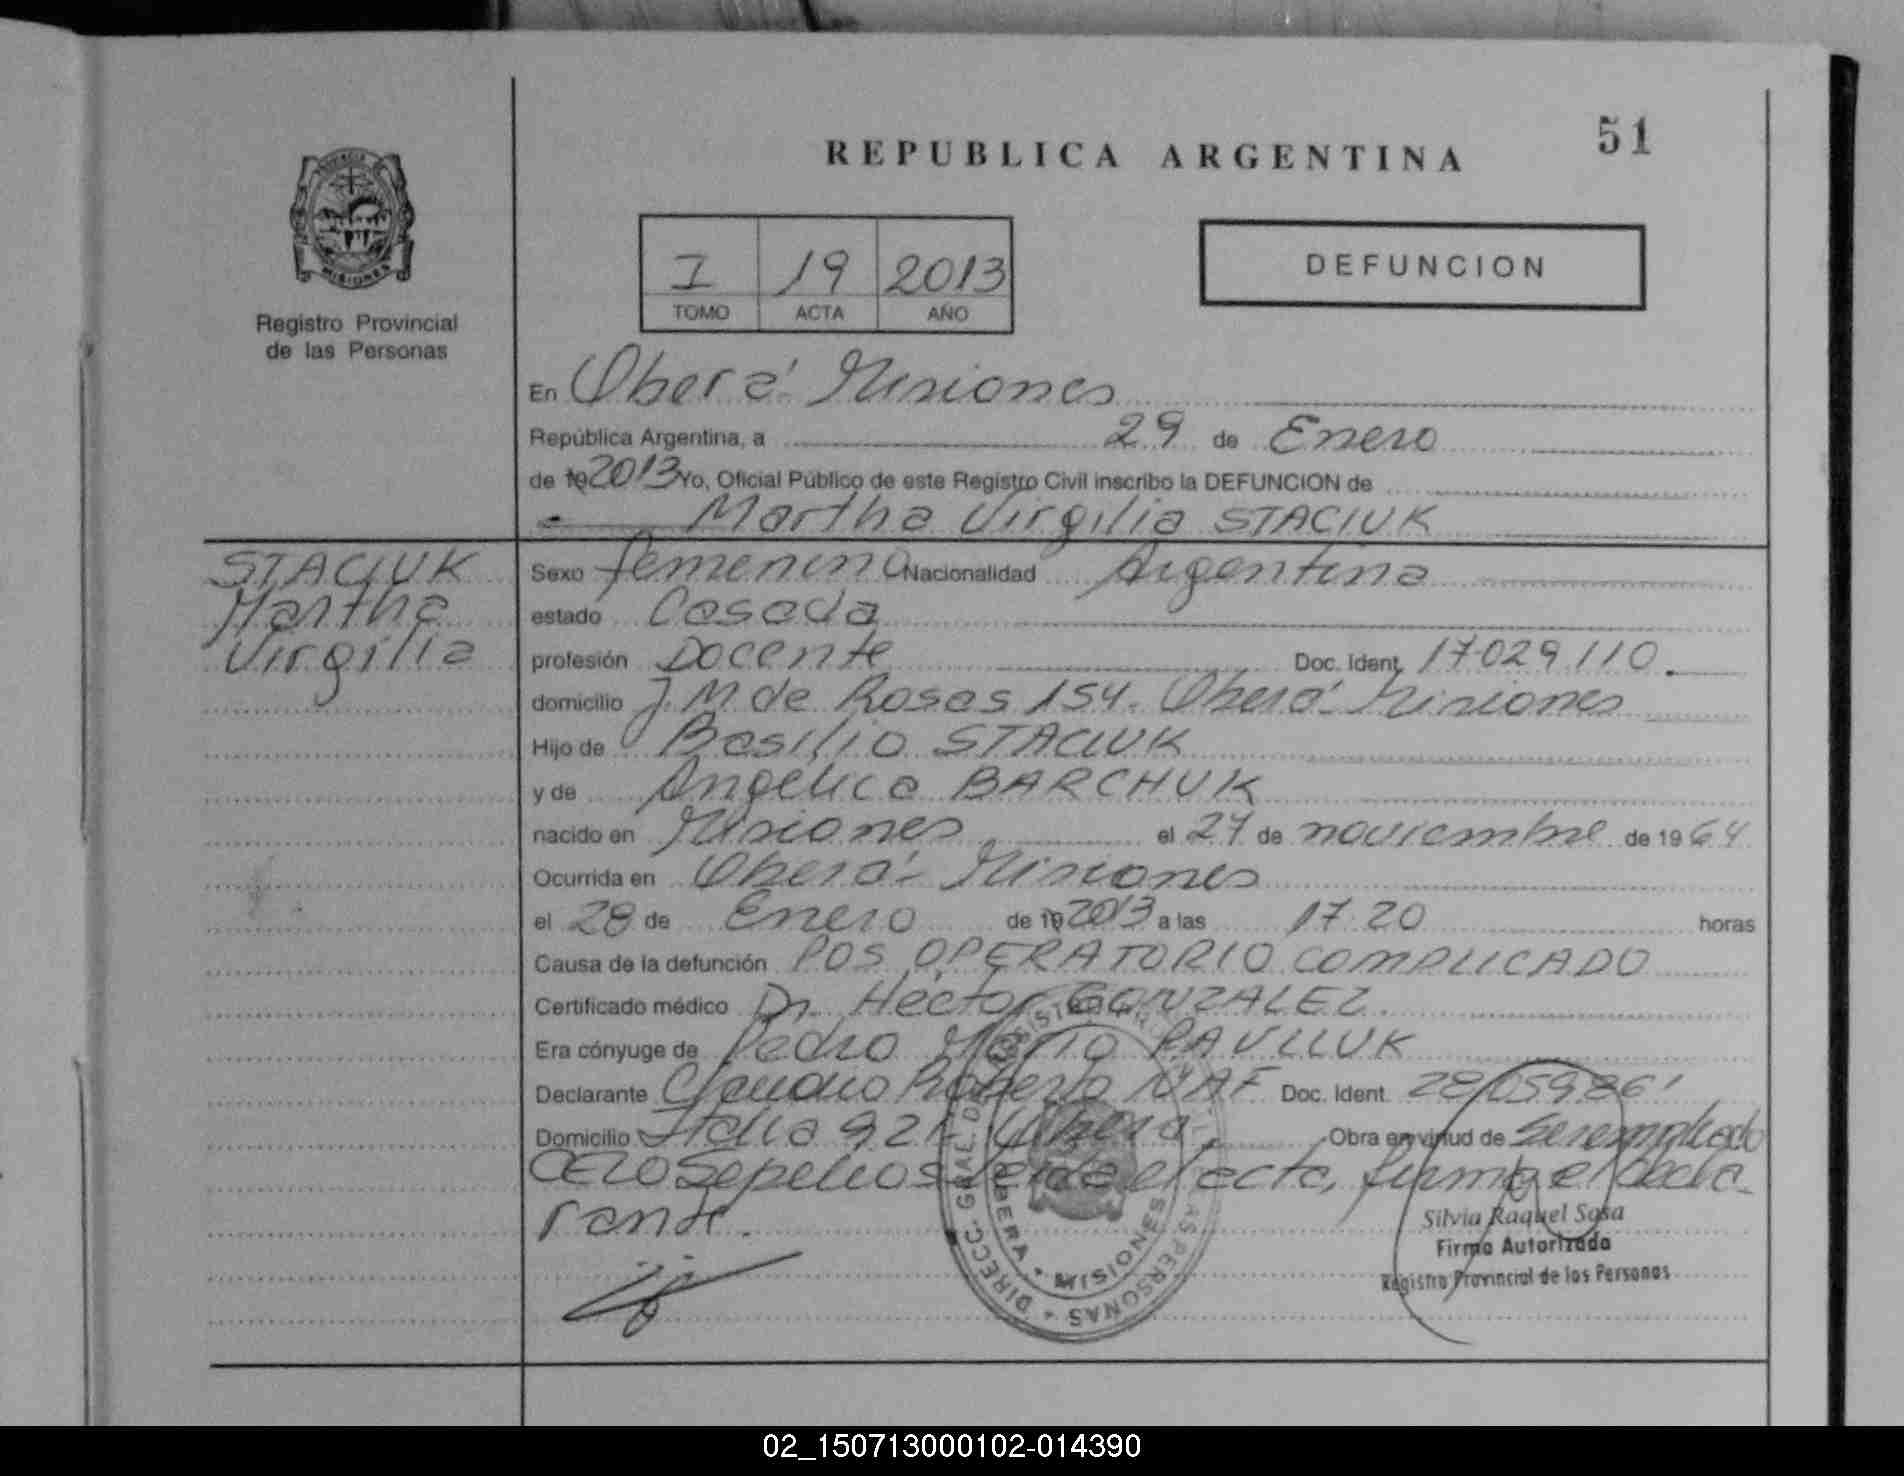 51
REPUBLICA ARGENTINA
I 19 2013
TOMO ACTA AÑO
DEFUNCION
MISIONES
Registro Provincial
de las Personas
En Oberá - Misiones
República Argentina, a 29 de Enero
de 19 2013 Yo, Oficial Público de este Registro Civil inscribo la DEFUNCION de
Martha Virgilia STACIUK
STACIUK
Martha
Virgilia
Sexo femenino Nacionalidad Argentina
estado Casada
profesión Docente Doc. Ident. 17029110
domicilio J. M. de Rosas 154. Oberá - Misiones
Hijo de Basilio STACIUK
y de Angélica BARCHUK
nacido en Misiones el 24 de noviembre de 1964
Ocurrida en Oberá - Misiones
el 28 de Enero de 19 2013 a las 17.20 horas
Causa de la defunción POS OPERATORIO COMPLICADO
Certificado médico Dr. Héctor GONZALEZ
Era cónyuge de Pedro Mario PAVLUK
Declarante Claudio Roberto NAF Doc. Ident. 28059861
Domicilio Italia Oberá. Obra en virtud de Ser empleado
CELO Sepelios Leida el acta, firma el decla-
rante.
DIRECC. GRAL. DEL REGISTRO PROVINCIAL DE LAS PERSONAS
OBERA - MISIONES
Silvia Raquel Sosa
Firma Autorizada
Registro Provincial de las Personas
02_150713000102-014390